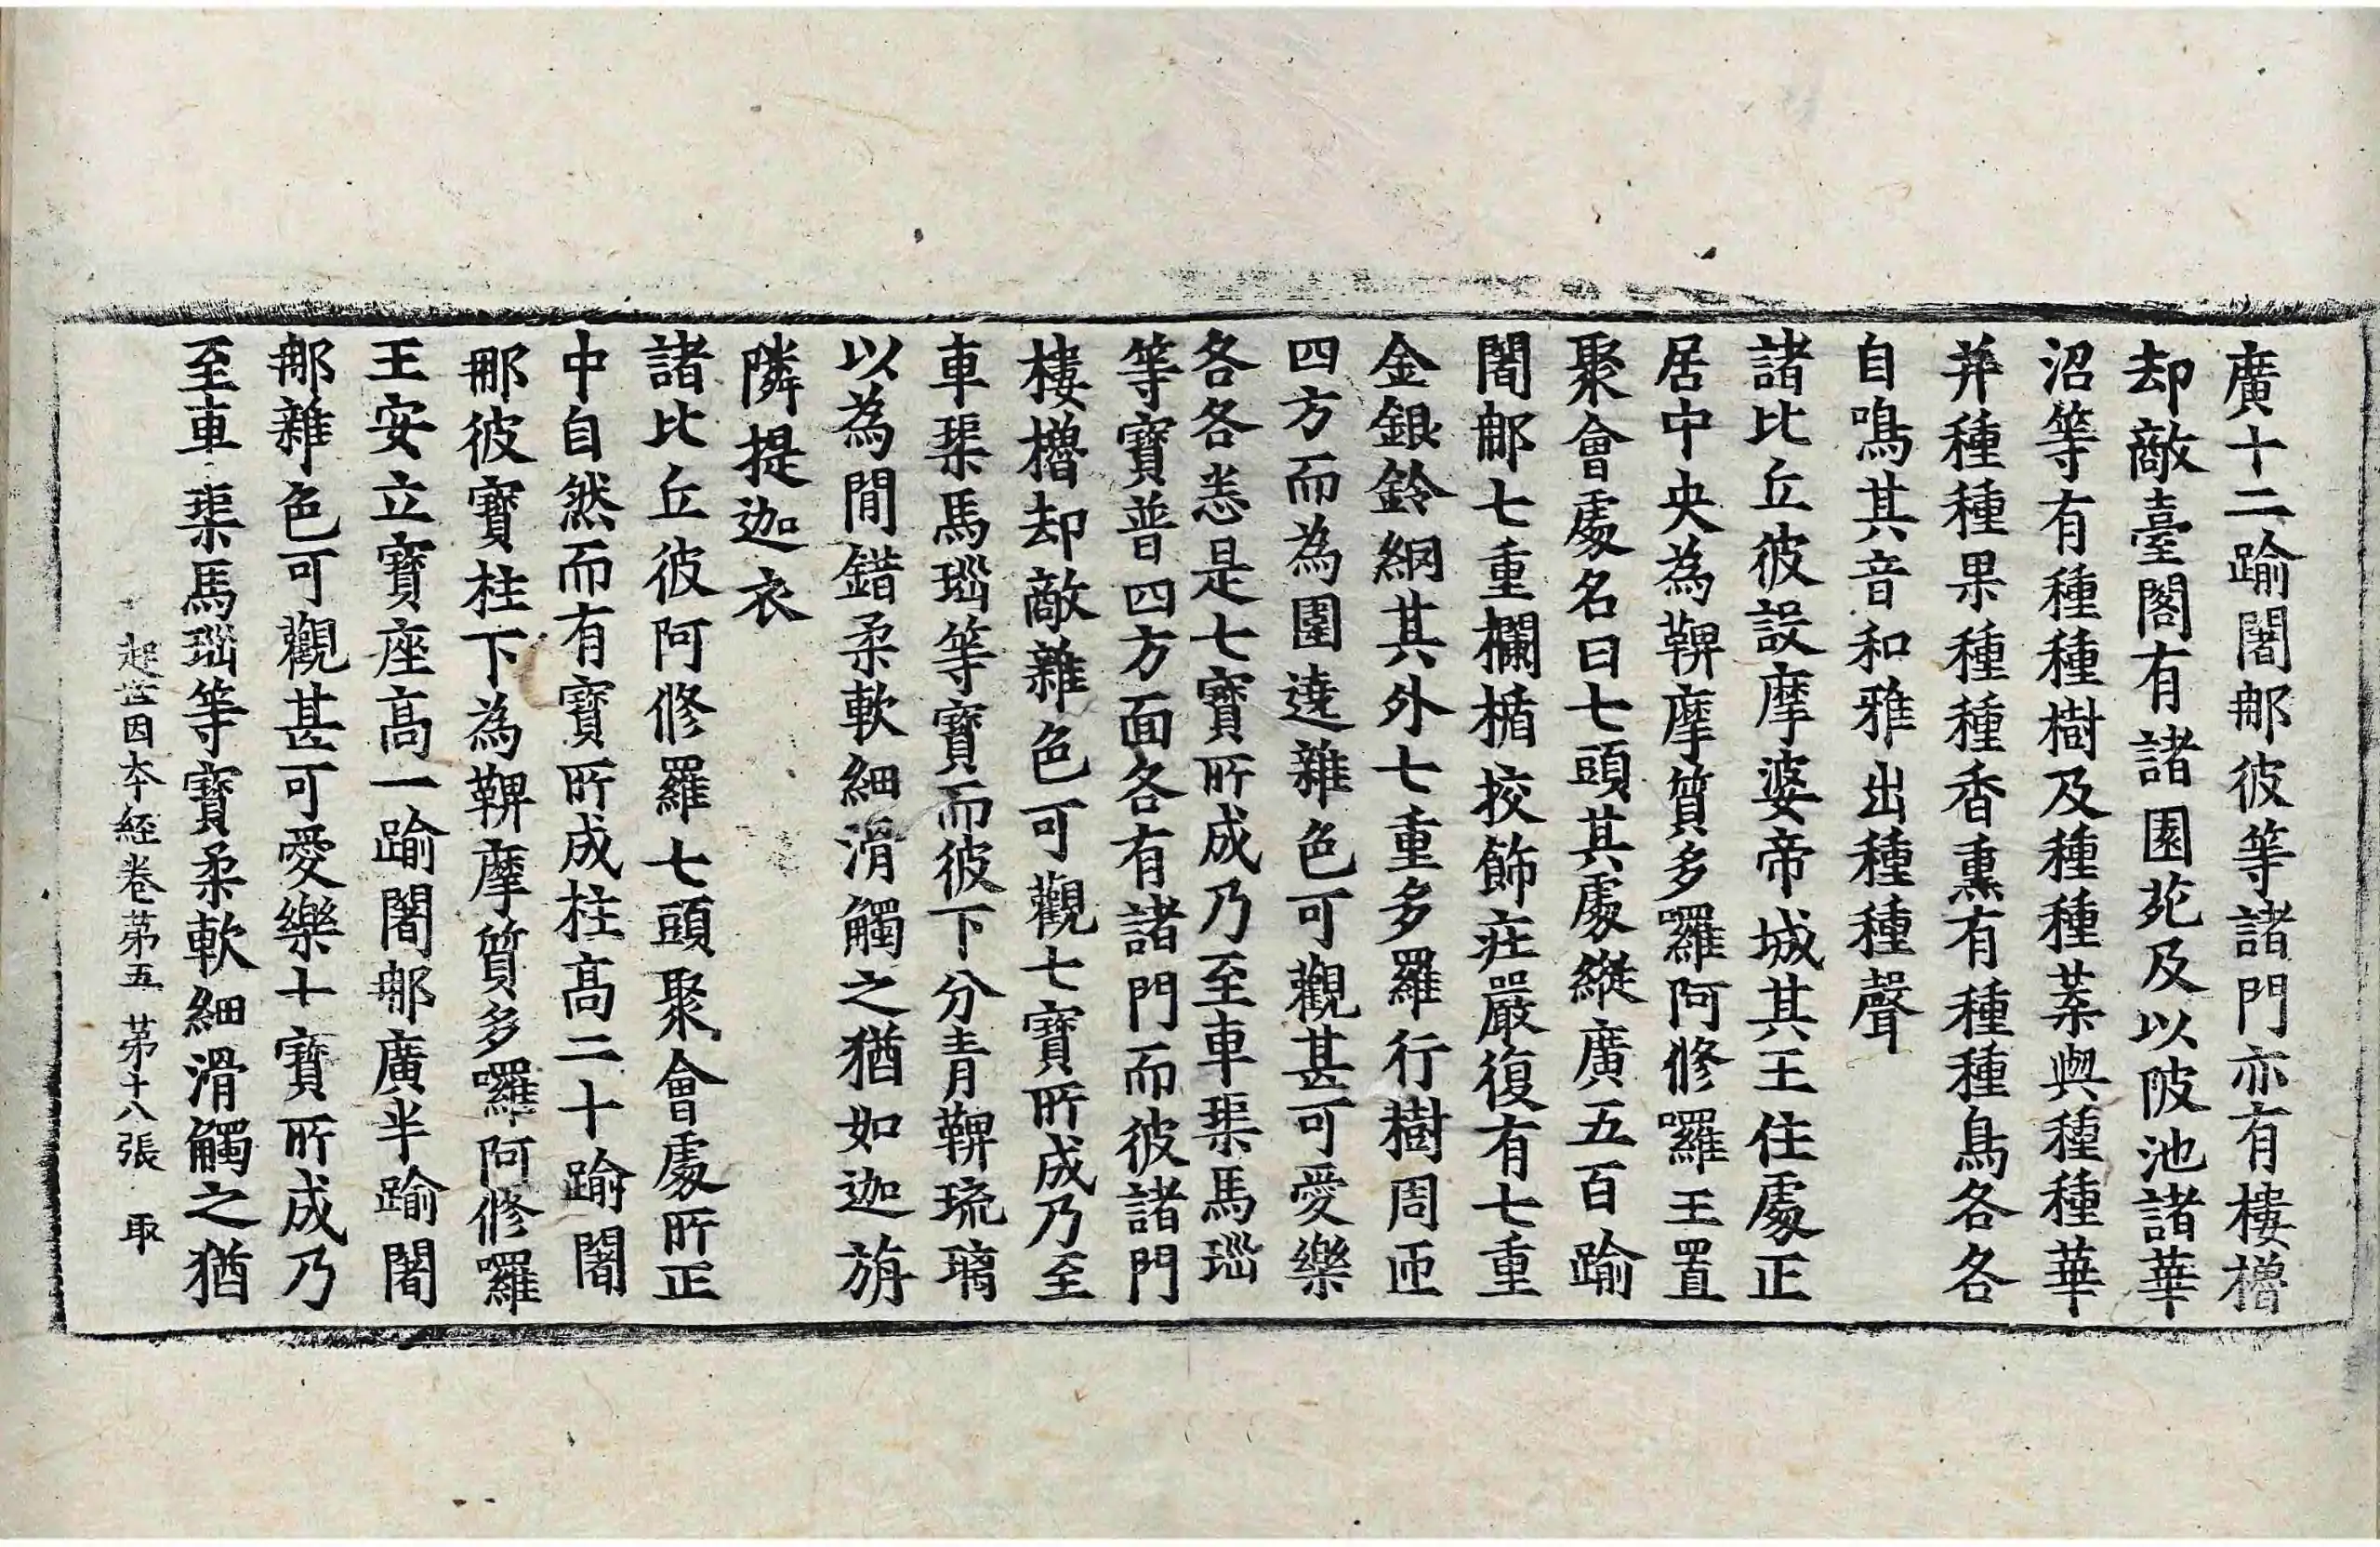 廣十二踰闍那彼等諸門亦有樓櫓
却敵臺閣有諸園苑及以陂池諸華
沼等有種種樹及種種葉與種種華
并種種果種種香熏有種種鳥各各
自鳴其音和雅出種種聲
諸比丘彼設摩婆帝城其王住處正
居中央為鞞摩質多囉阿修囉王置
聚會處名曰七頭其處縱廣五百踰
闍那七重欄楯挍飾莊嚴復有七重
金銀鈴網其外七重多羅行樹周匝
四方而為圍遶雜色可觀甚可愛樂
各各悉是七寶所成乃至車璖馬瑙
等寶普四方面各有諸門而彼諸門
樓櫓却敵雜色可觀七寶所成乃至
車璖馬瑙等寶而彼下分青鞞琉璃
以為閒錯柔軟細滑觸之猶如迦旃
隣提迦衣
諸比丘彼阿修羅七頭聚會處所正
中自然而有寶所成柱高二十踰闍
那彼寶柱下為鞞摩質多囉阿修囉
王安立寶座高一踰闍那廣半踰闍
那雜色可觀甚可愛樂十寶所成乃
至車璖馬瑙等寶柔軟細滑觸之猶
起世因本經卷苐五 苐十八張 取